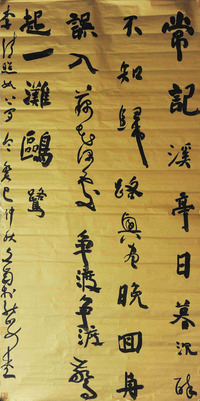 常記溪亭日暮沉醉
不知歸路興盡晚回舟
誤入藕花深處争渡争渡驚
起一灘鷗鷺
李清照如夢令癸巳仲秋